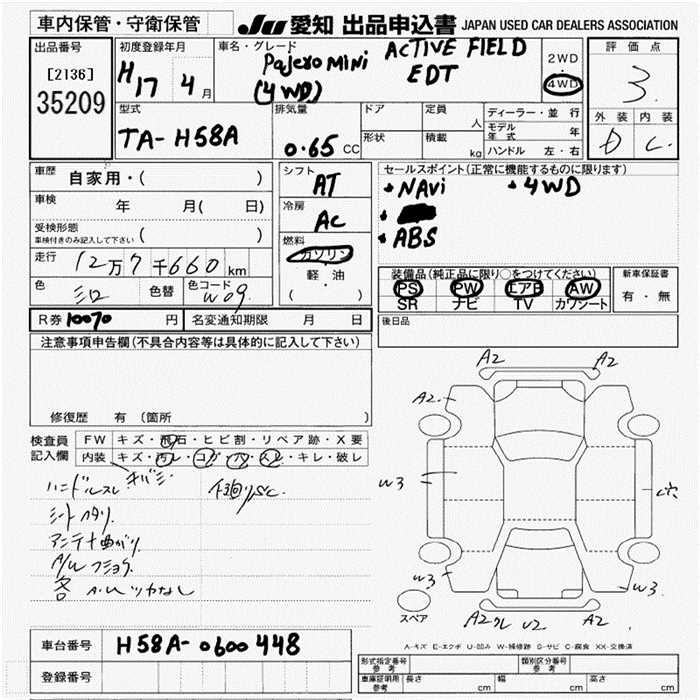 車内保管・守衛保管
JU 愛知 出品申込書 JAPAN USED CAR DEALERS ASSOCIATION
出品番号
[2136]
35209
初度登録年月
H17 4月
車名・グレード
Pajero mini ACTIVE FIELD
(4WD) EDT
2WD
・
4WD
評価点
3.
外装 内装
D C.
型式
TA-H58A
排気量
0.65 CC
ドア
形状
定員
人
積載
kg
ディーラー・並行
モデル年式 年
ハンドル 左・右
車歴
自家用・( )
車検
年 月( 日)
受検形態
車検付きのみ記入して下さい ( )
走行
12万7千660km
色
シロ
色替
色コード
W09.
シフト
AT
冷房
AC
燃料
ガソリン
軽・油
( )
セールスポイント(正常に機能するものに限ります)
・NAVi ・4WD
・ABS
装備品(純正品に限り○をつけてください)
PS PW エアB AW
SR ナビ TV カワシート
新車保証書
有・無
R券 10070 円
名変通知期限 月 日
後日品
注意事項申告欄(不具合内容等は具体的に記入して下さい)
修復歴 有 (箇所 )
検査員
記入欄
FW キズ・飛石・ヒビ割・リペア跡・X要
内装 キズ・汚レ・コゲ・穴・スレ・キレ・破レ
ハンドルスレ
シートヘタリ
アンテナ曲がり
A2 A2
A2.
W3
W3
W3.
A2 U2 A2
スペア
A-キズ E-エクボ U-凹み W-補修跡 S-サビ C-腐食 XX-交換済
車台番号
H58A-0600448
登録番号
形式指定番号
参考
類別区分番号
参考
車庫証明用
参考
長さ cm 幅 cm 高さ cm